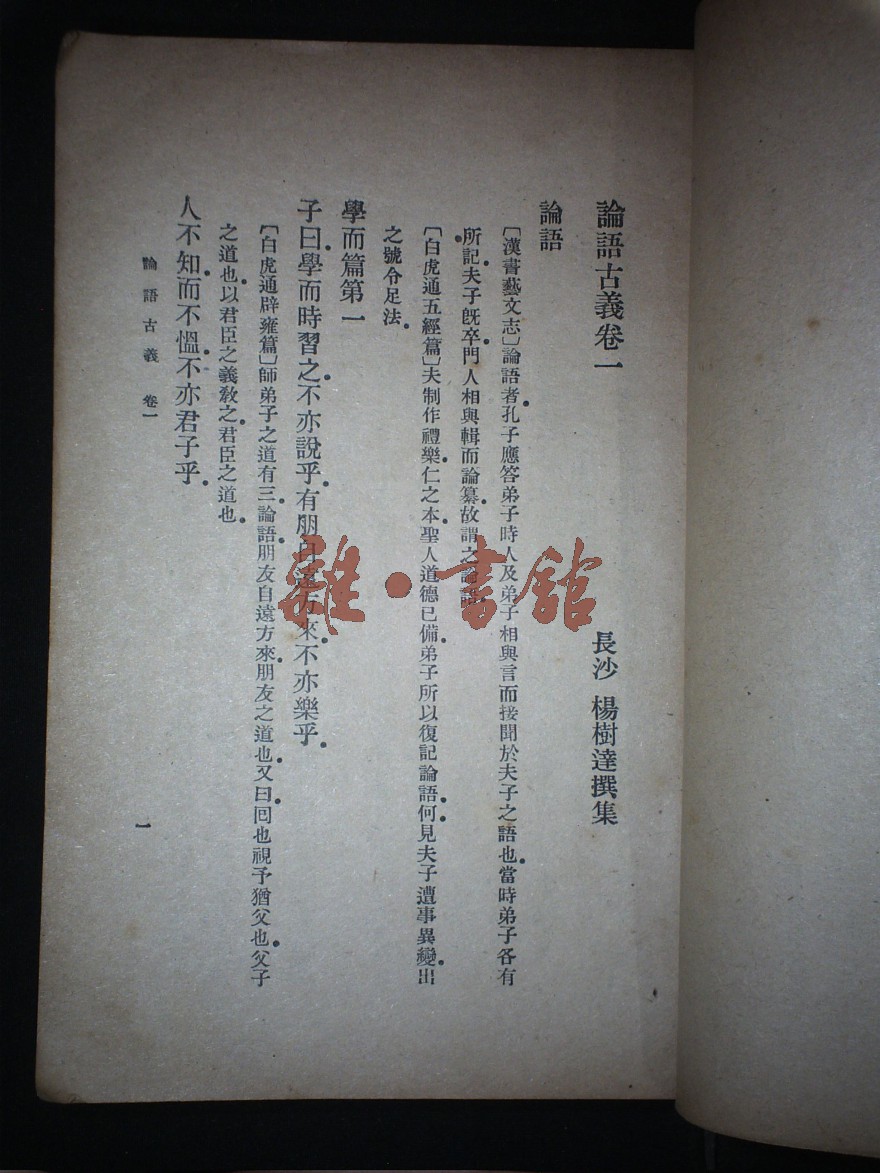 論語古義卷一
長沙 楊樹達撰集
論語
〔漢書藝文志〕論語者孔子應答弟子時人及弟子相與言而接聞於夫子之語也當時弟子各有
所記夫子旣卒門人相與輯而論纂故謂之論語
〔白虎通五經篇〕夫制作禮樂仁之本聖人道德已備弟子所以復記論語何見夫子遭事異變出
之號令足法
學而篇第一
子曰學而時習之不亦說乎有朋自遠方來不亦樂乎
〔白虎通辟雍篇〕師弟子之道有三論語朋友自遠方來朋友之道也又曰囘也視予猶父也父子
之道也以君臣之義敎之君臣之道也
人不知而不慍不亦君子乎
論語古義 卷一
一
雜·書館